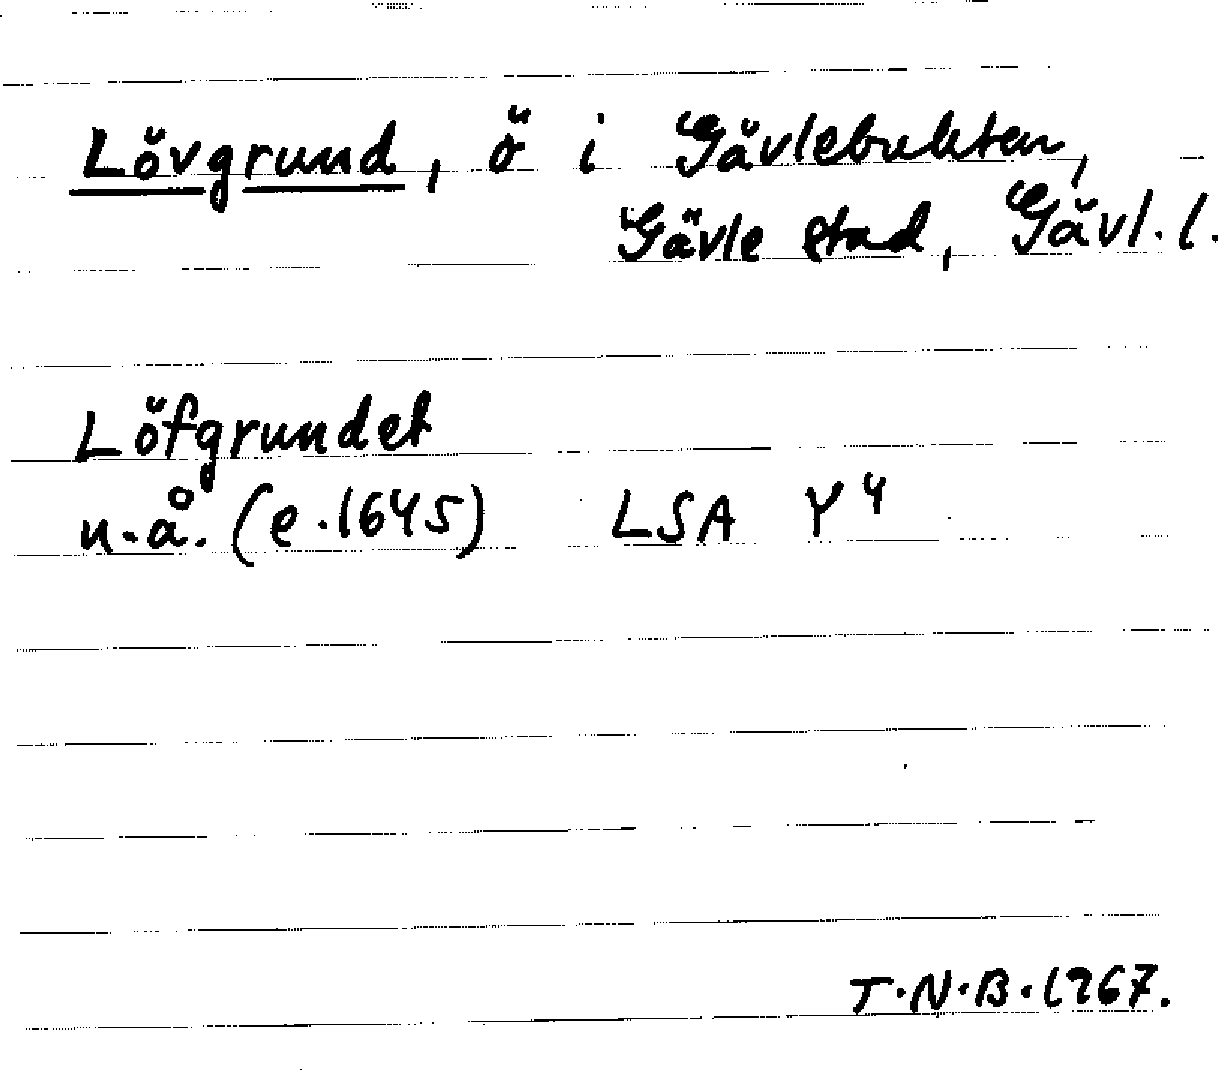 Lövgrund, ö i Gävlebukten,
Gävle stad, Gävl. l.
Löfgrundet
u.å. (e. 1645) LSA Y 4
T.N.B. 1967.